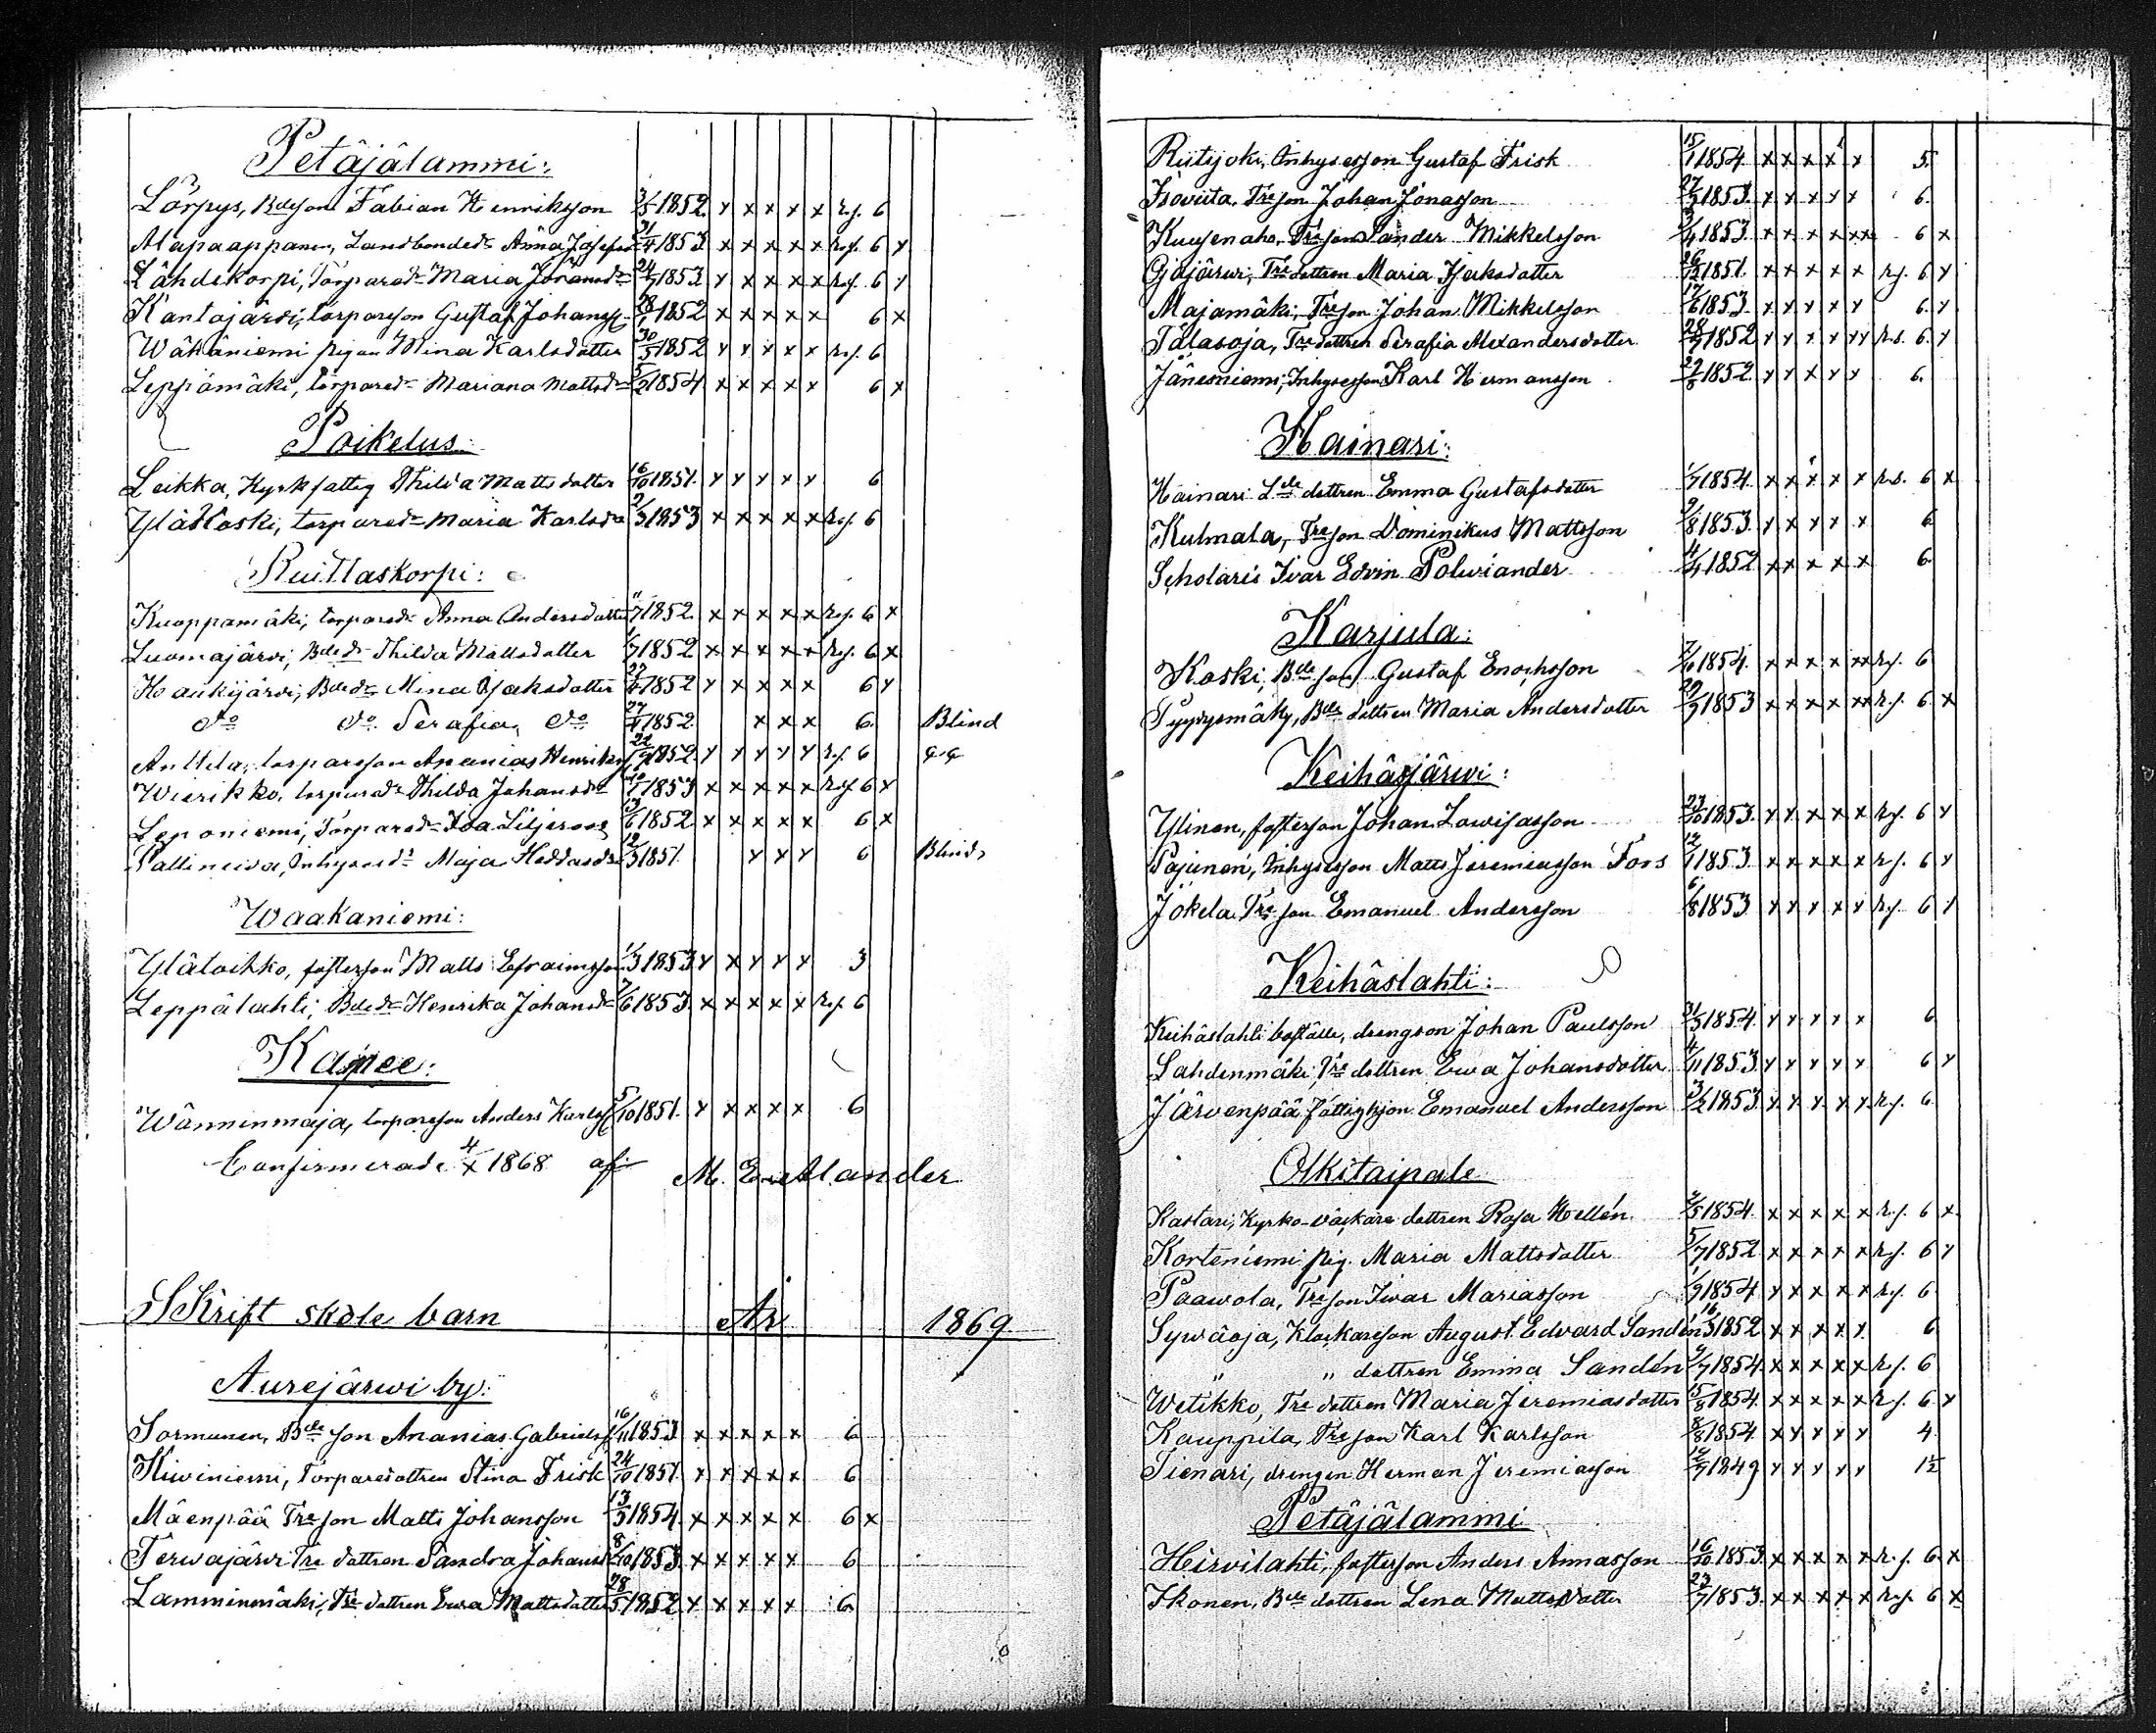 Petäjälammi:
Lörpys, Bdeson Fabian Henriksson 3/5 1852. x x x x x rs. 6
Alapaappanen, Landbondedr Anna Josefsdr 21/4 1853 x x x x x rsf. 6 x
Lähdekorpi, Torparedr Maria Göransdr 24/7 1853 x x x x x rsf. 6 x
Kantojärvi, torparson Gustaf Johanss. 28/1 1852 x x x x x 6 x
Wähäniemi pigan Mina Karlsdotter 30/5 1852 x x x x x rsf. 6
Leppämäki, torparedr Mariana Mattsdr 5/2 1854 x x x x x 6 x
Poikelus:
Leikka, Kyrkfattig Thilda Mattsdotter 16/10 1851. x x x x x 6
Yläkoski, torparedr Maria Karlsdr 2/3 1853 x x x x x rsf. 6
Ruittaskorpi:
Kuoppamäki, torparedr Anna Andersdotter 11/7 1852. x x x x x rsf. 6 x
Luomajärvi, Bdedr Thilda Mattsdotter 1/7 1852 x x x x x rsf. 6 x
Haukijärvi, Bdedr Mina Isaksdotter 27/4 1852 x x x x x 6 x
do do Serafia do 27/4 1852. x x x 6. Blind
Anttila, torparson Ananias Henriks. 22/9 1852. x x x x x rsf. 6
Wierikko, torparedr Thilda Johansdr 10/7 1853 x x x x x rsf 6 x
Leponiemi, Torparedr Ida Liljeroos 13/6 1852. x x x x x 6 x
Pallineiva, Inhysesdr Maja Heddasdr 12/3 1851. x x x 6 Blind
Waakaniemi:
Ylätoikko, fosterson Matts Efraimsson 1/3 1853 x x x x x 3
Leppälahti, Bdedr Henrika Johansdr 7/6 1853. x x x x x rsf. 6
Kapee:
Wänninmaja, torparson Anders Karlss. 5/10 1851. x x x x x 6
Confirmerade 4/x 1868 af M. E. Alander
Skrift skole barn År 1869
Aurejärwi by:
Sormunen, Bde son Ananias Gabriels. 16/11 1853 x x x x x 6
Kiviniemi, Torparedottren Stina Frisk 24/10 1851. x x x x x 6
Mäenpää Tre son Matts Johansson 13/3 1854. x x x x x 6 x
Terwajärvi Tre dottren Sandra Johansd 8/10 1853. x x x x x 6
Lamminmäki, Tre dottren Ewa Mattsdotter 28/5 1852 x x x x x 6.
Riitijoki, Inhysesson Gustaf Frisk 15/1 1854 x x x x x 5.
Isoviita, Treson Johan Jonasson 27/3 1853. x x x x x 6.
Kuusenaho, Treson Sander Mikkelsson 3/4 1853. x x x x x x 6 x
Ojajärwi, Tre dottren Maria Isaksdotter 26/12 1851. x x x x x rs. 6 x
Majamäki, Treson Johan Mikkelsson 17/6 1853. x x x x x 6. x
Palasoja, Tre dottren Serafia Alexandersdotter 28/7 1852 x x x x x x rs. 6. x
Jäneniemi, Inhysesson Karl Hermansson 27/8 1852. x x x x x 6.
Hainari:
Hainari Lde dottren Emma Gustafsdotter 1/7 1854. x x x x x rs. 6 x
Kulmala, Treson Dominikus Mattsson 9/8 1853. x x x x x 6
Scholaris Ivar Edvin Polviander 4/4 1852 x x x x x 6.
Karjula:
Koski, Bde son Gustaf Enochsson 7/10 1854. x x x x x x rs. 6
Pyypysmäky, Bde dottren Maria Andersdotter 29/9 1853 x x x x x x rs. 6 x
Keihäsjärwi:
Ylinen, fosterson Johan Lowisasson 23/10 1853. x x x x x rs. 6 x
Pajunen, Inhysesson Matts Jeremiasson Foss 12/1 1853. x x x x x rs. 6 x
Jokela Tre son Emanuel Andersson 6/8 1853 x x x x x rs. 6 x
Keihäslahti:
Keihäslahti boställe, drengson Johan Paulsson 31/3 1854. x x x x x 6
Lahdenmäki, Tre dottren Ewa Johansdotter 4/11 1853. x x x x x 6 x
Järvenpää fattighjon Emanuel Andersson 3/2 1853 x x x x x rs. 6
Olkitaipale
Kastari, Kyrko-väckare dottren Rosa Hellén 2/5 1854. x x x x x rs. 6 x.
Korteniemi pig. Maria Mattsdotter 5/7 1852. x x x x x rs. 6 x
Paawola, Treson Iivar Mariasson 1/9 1854 x x x x x rs. 6
Sywäoja, Klockarson August Edvard Sandén 16/3 1852 x x x x x 6
" " dottren Emma Sandén 9/7 1854. x x x x x rs. 6
Wetikko, Tre dottren Maria Jeremiasdotter 15/8 1854. x x x x x rs. 6 x
Kauppila, Treson Karl Karlsson 8/8 1854. x x x x x 4
Tienari, drengen Herman Jeremiasson 12/7 1849 x x x x x 1½
Petäjälammi
Hirvilahti, fosterson Anders Annasson 16/10 1853. x x x x x rs. 6. x
Ikonen, Bde dottren Lena Mattsdotter 23/7 1853. x x x x x rs. 6 x